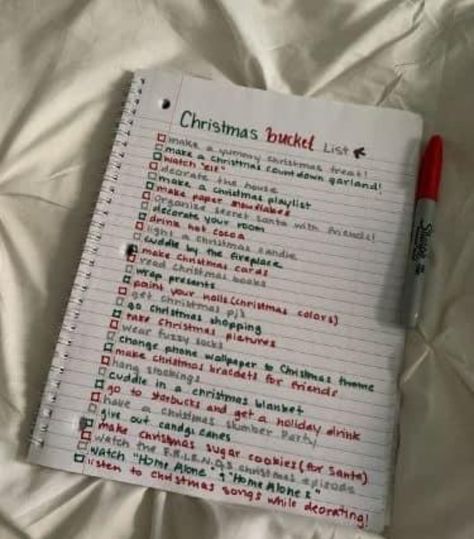 Christmas bucket List
make a yummy christmas treat!
make a christmas countdown garland!
watch "elf"
decorate the house
make a christmas playlist
make paper snowflakes
organize secret santa with friends!
decorate your room
drink hot cocoa
light a christmas candle
cuddle by the fireplace
make christmas cards
read christmas books
wrap presents
paint your nails (christmas colors)
get christmas pjs
go christmas shopping
take christmas pictures
wear fuzzy socks
change phone wallpaper to christmas theme
make christmas braclets for friends
hang stockings
cuddle in a christmas blanket
go to starbucks and get a holiday drink
have a christmas slumber party
give out candy canes
make christmas sugar cookies (for santa)
watch the F.R.I.E.N.D.S christmas episode
watch "Home Alone" & "Home Alone 2"
listen to christmas songs while deorating!
Sharpie